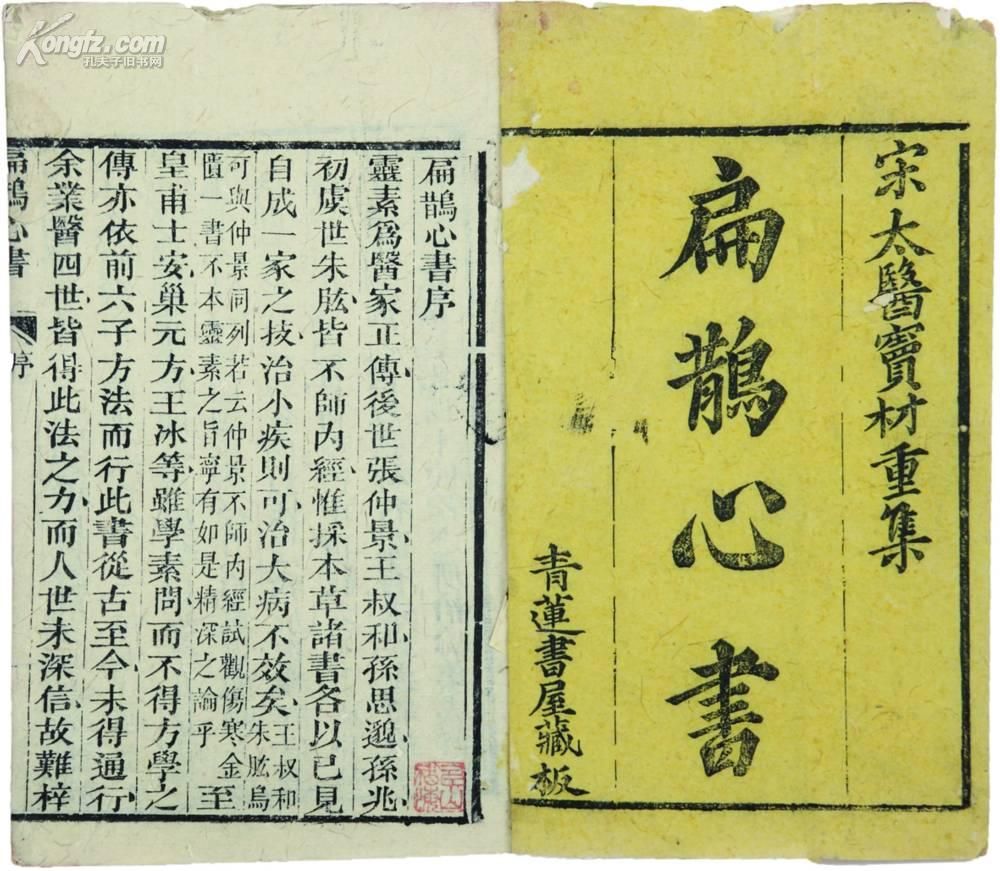 宋太醫竇材重集
扁鵲心書
青蓮書屋藏板
扁鵲心書序
靈素爲醫家正傳後世張仲景王叔和孫思邈孫兆
初虞世朱肱皆不師內經惟採本草諸書各以己見
自成一家之技治小疾則可治大病不效矣王叔和朱肱烏
可與仲景同列若云仲景不師內經試觀傷寒金
匱一書不本靈素之旨寧有如是精深之論乎至
皇甫士安巢元方王冰等雖學素問而不得方學之
傳亦依前六子方法而行此書從古至今未得通行
余業醫四世皆得此法之力而人世未深信故難梓
扁鵲心書
序
Kongfz.com
孔夫子旧书网